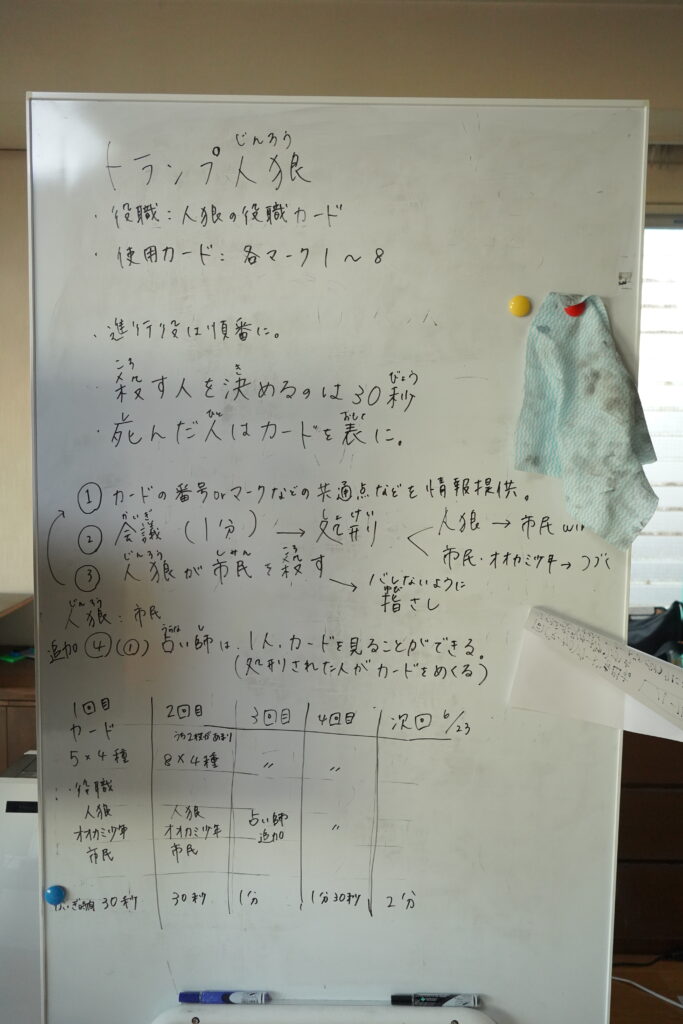 じんろう
トランプ人狼
・役職：人狼の役職カード
・使用カード：各マーク1〜8
・進行役は順番に。
ころ き びょう
・殺す人を決めるのは30秒
し ひと おもて
・死んだ人はカードを表に。
① カードの番号orマークなどの共通点などを情報提供。
かいぎ しょけい
② 会議（1分）→ 処刑 < 人狼 → 市民 win
市民・オオカミ少年 → つづく
じんろう しみん ころ
③ 人狼が市民を殺す → バレないように
ゆび
指さし
じんろう
人狼：市民
うらな し
追加④(①) 占い師は、1人、カードを見ることができる。
(処刑された人がカードをめくる)
1回目 2回目 3回目 4回目 次回 6/23
カード うち2枚があまり
5×4種 8×4種 〃 〃
・役職
人狼 人狼 占い師
オオカミ少年 オオカミ少年 追加 〃
市民 市民
30秒 30秒 1分 1分30秒 2分